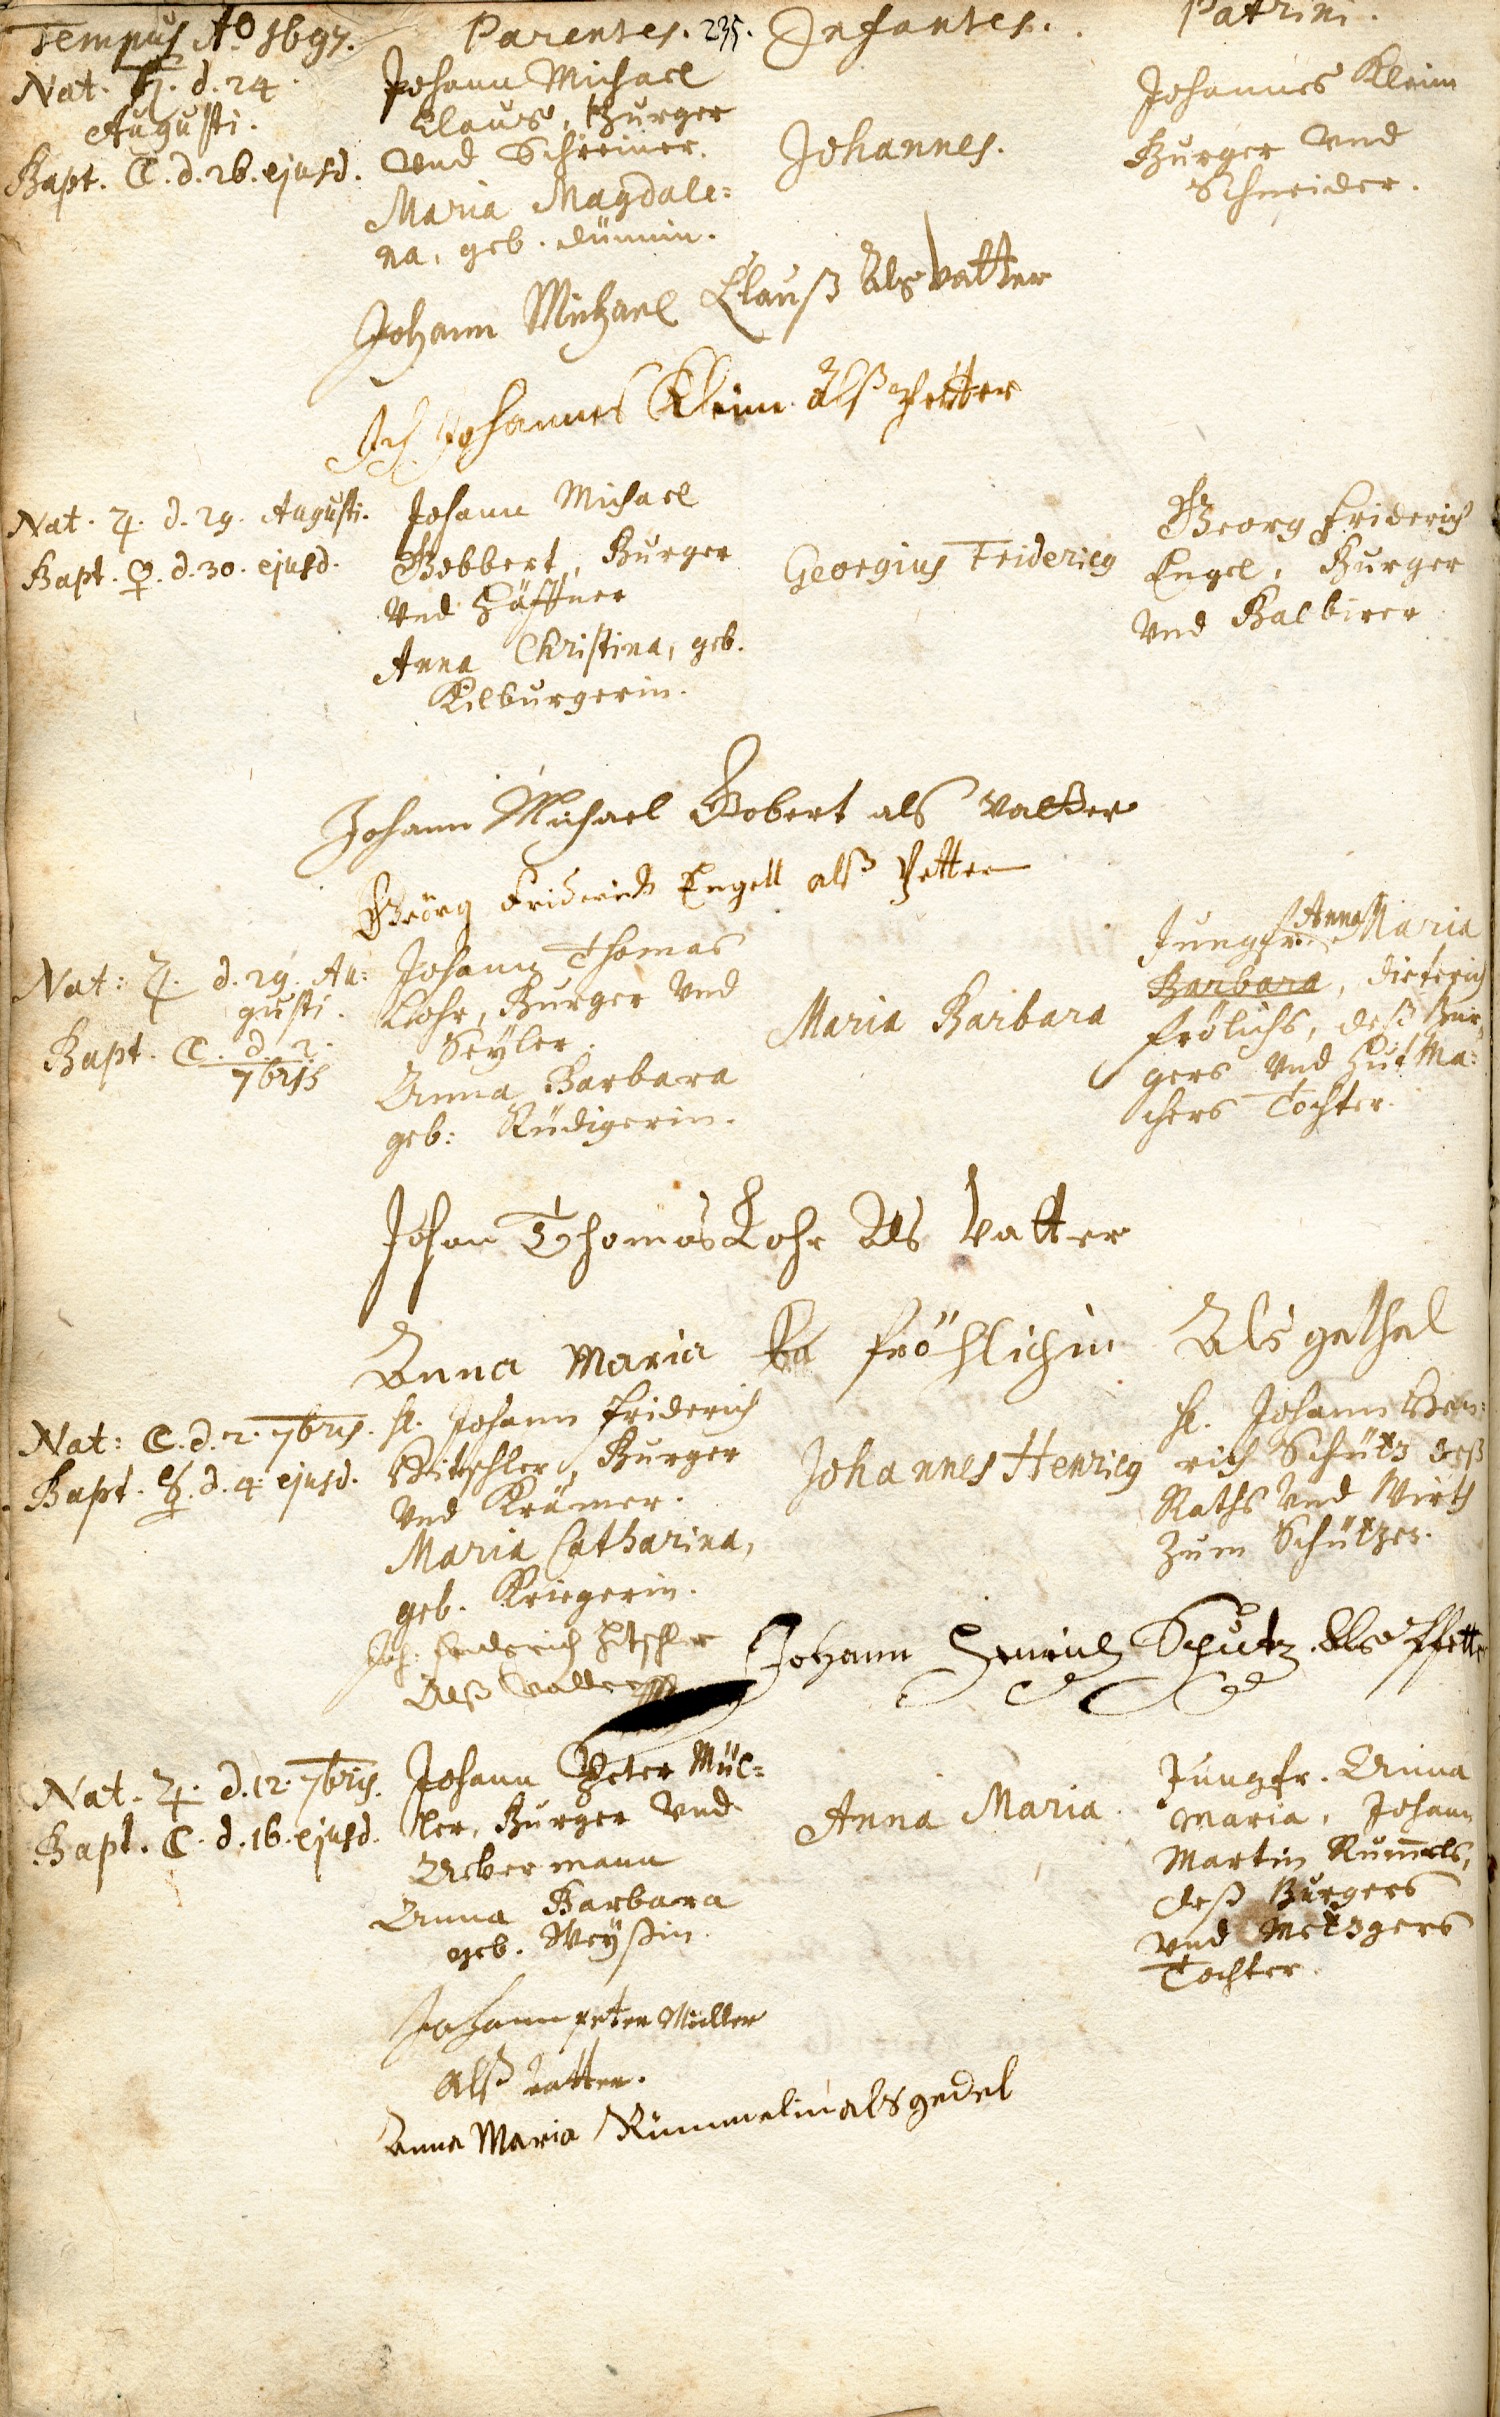 Tempus Ao 1697. Parentes. 235. Infantes. Patrini.
Nat. ♄. d. 24.
Augusti.
Bapt. ☾. d. 26. ejusd.
Johann Michael
Claus, Burger
Vnd Schreiner.
Maria Magdale=
na, geb. Dümin.
Johannes.
Johannes Kleim
Burger Vnd
Schneider.
Johann Michael Clauß Als Vatter
Ich Johannes Kleim Alß Petter
Nat. ♃. d. 29. Augusti.
Bapt. ♀. d. 30. ejusd.
Johann Michael
Bobbert, Burger
Vnd Häffner
Anna Christina, geb.
Kilburgerin.
Georgius Frideric9
Georg Friderich
Engel, Burger
Vnd Balbirer
Johann Michael Bobert als Vatter
Geörg Friderich Engell alß Petter
Nat: ♃. d. 29. Au=
gusti.
Bapt. ☾. d. 2.
7bris
Johann Thomas
Lohr, Burger Vnd
Seyler.
Anna Barbara
geb: Rüdigerin.
Maria Barbara
Jungfr. Anna Maria
Barbara, Dieterich
Frölichs, deß Bur,
gers Vnd Hut Ma=
chers Tochter.
Johan Thomas Lohr Als Vatter
Anna Maria Ba fröhlichin Als gethel
Nat: ☾. d. 2. 7bris.
Bapt. ☿. d. 4. ejusd.
H. Johann Friderich
Hitschler, Burger
Vnd Krämer.
Maria Catharina,
geb. Kriegerin.
Johannes Henric9
H. Johann Hen=
rich Schütz deß
Raths Vnd Wirth
Zum Schützen.
Joh: friderich Hitschler
Alß Vatter
Johann Henrich Schütz Als Pfetter
Nat. ♃. d. 12. 7bris.
Bapt. ☾. d. 16. ejusd.
Johann Peter Mül=
ler, Burger Vnd
Ackermann
Anna Barbara
geb. Weyßin.
Anna Maria.
Jungfr. Anna
Maria, Johann
Martin Rum̄els,
deß Burgers
Vnd Metzgers
Tochter.
Johann peter Müller
Alß Vatter.
Anna Maria Rümmelin als gedel